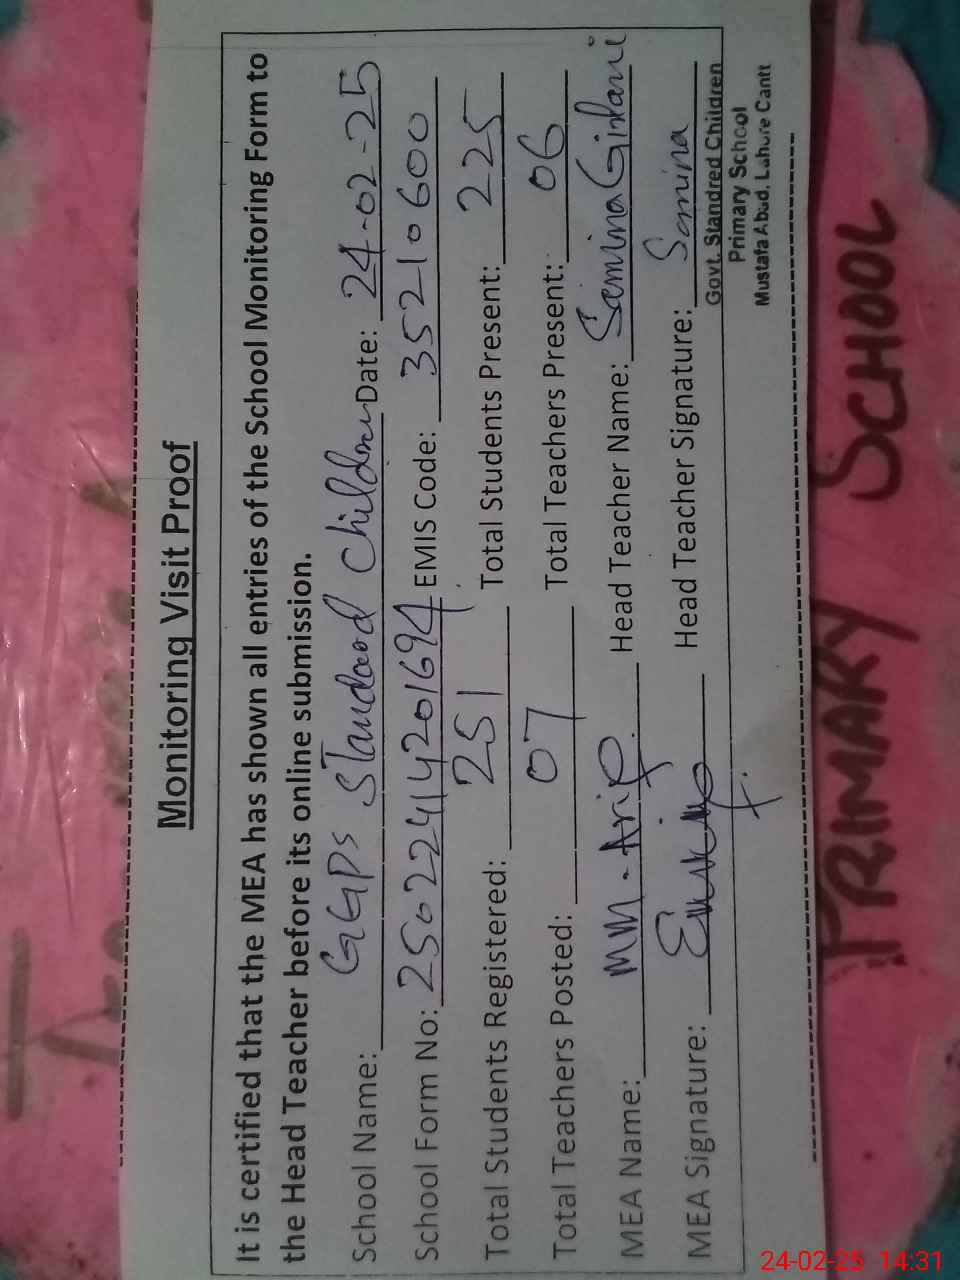 Monitoring Visit Proof
It is certified that the MEA has shown all entries of the School Monitoring Form to
the Head Teacher before its online submission.
School Name: GGPS Standard Children Date: 24-02-25
School Form No: 25022414201694 EMIS Code: 35210600
Total Students Registered: 251 Total Students Present: 225
Total Teachers Posted: 07 Total Teachers Present: 06
MEA Name: MM-Arif Head Teacher Name: Samina Gillani
MEA Signature: Head Teacher Signature: Samina
Govt. Standred Children
Primary School
Mustafa Abad, Lahore Cantt
PRIMARY SCHOOL
24-02-25 14:31